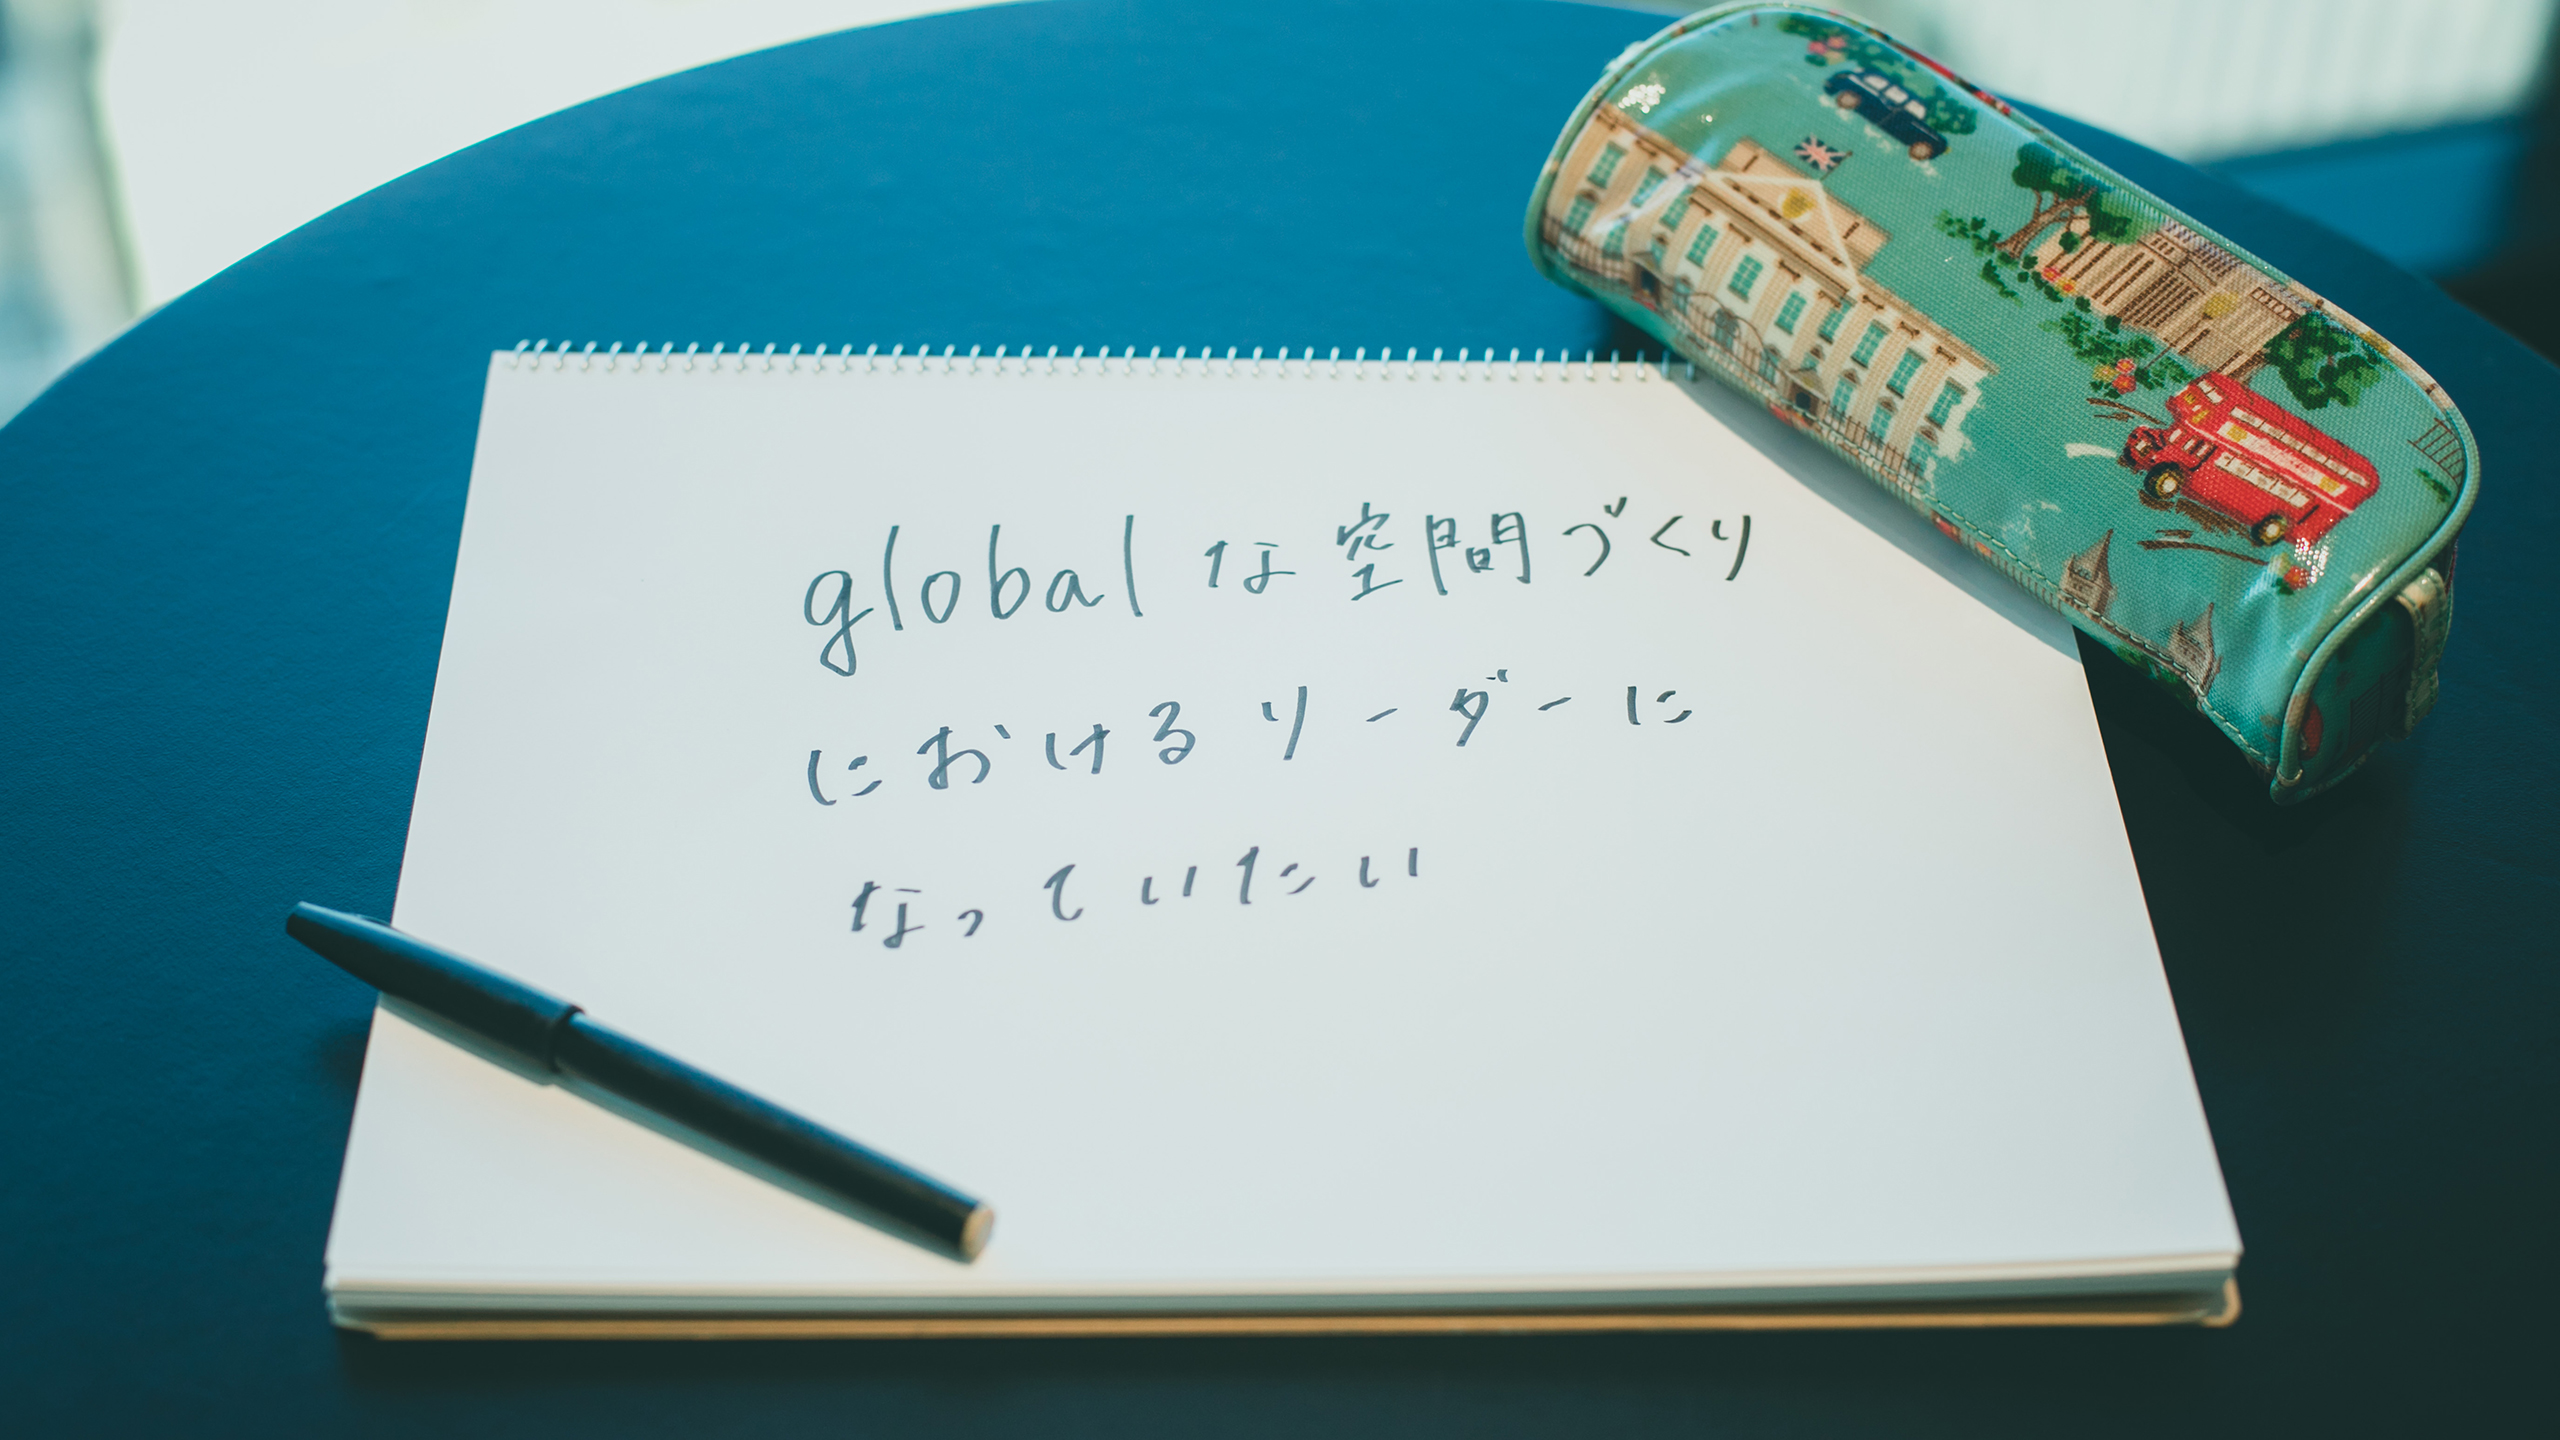 globalな空間づくり
におけるリーダーに
なっていたい